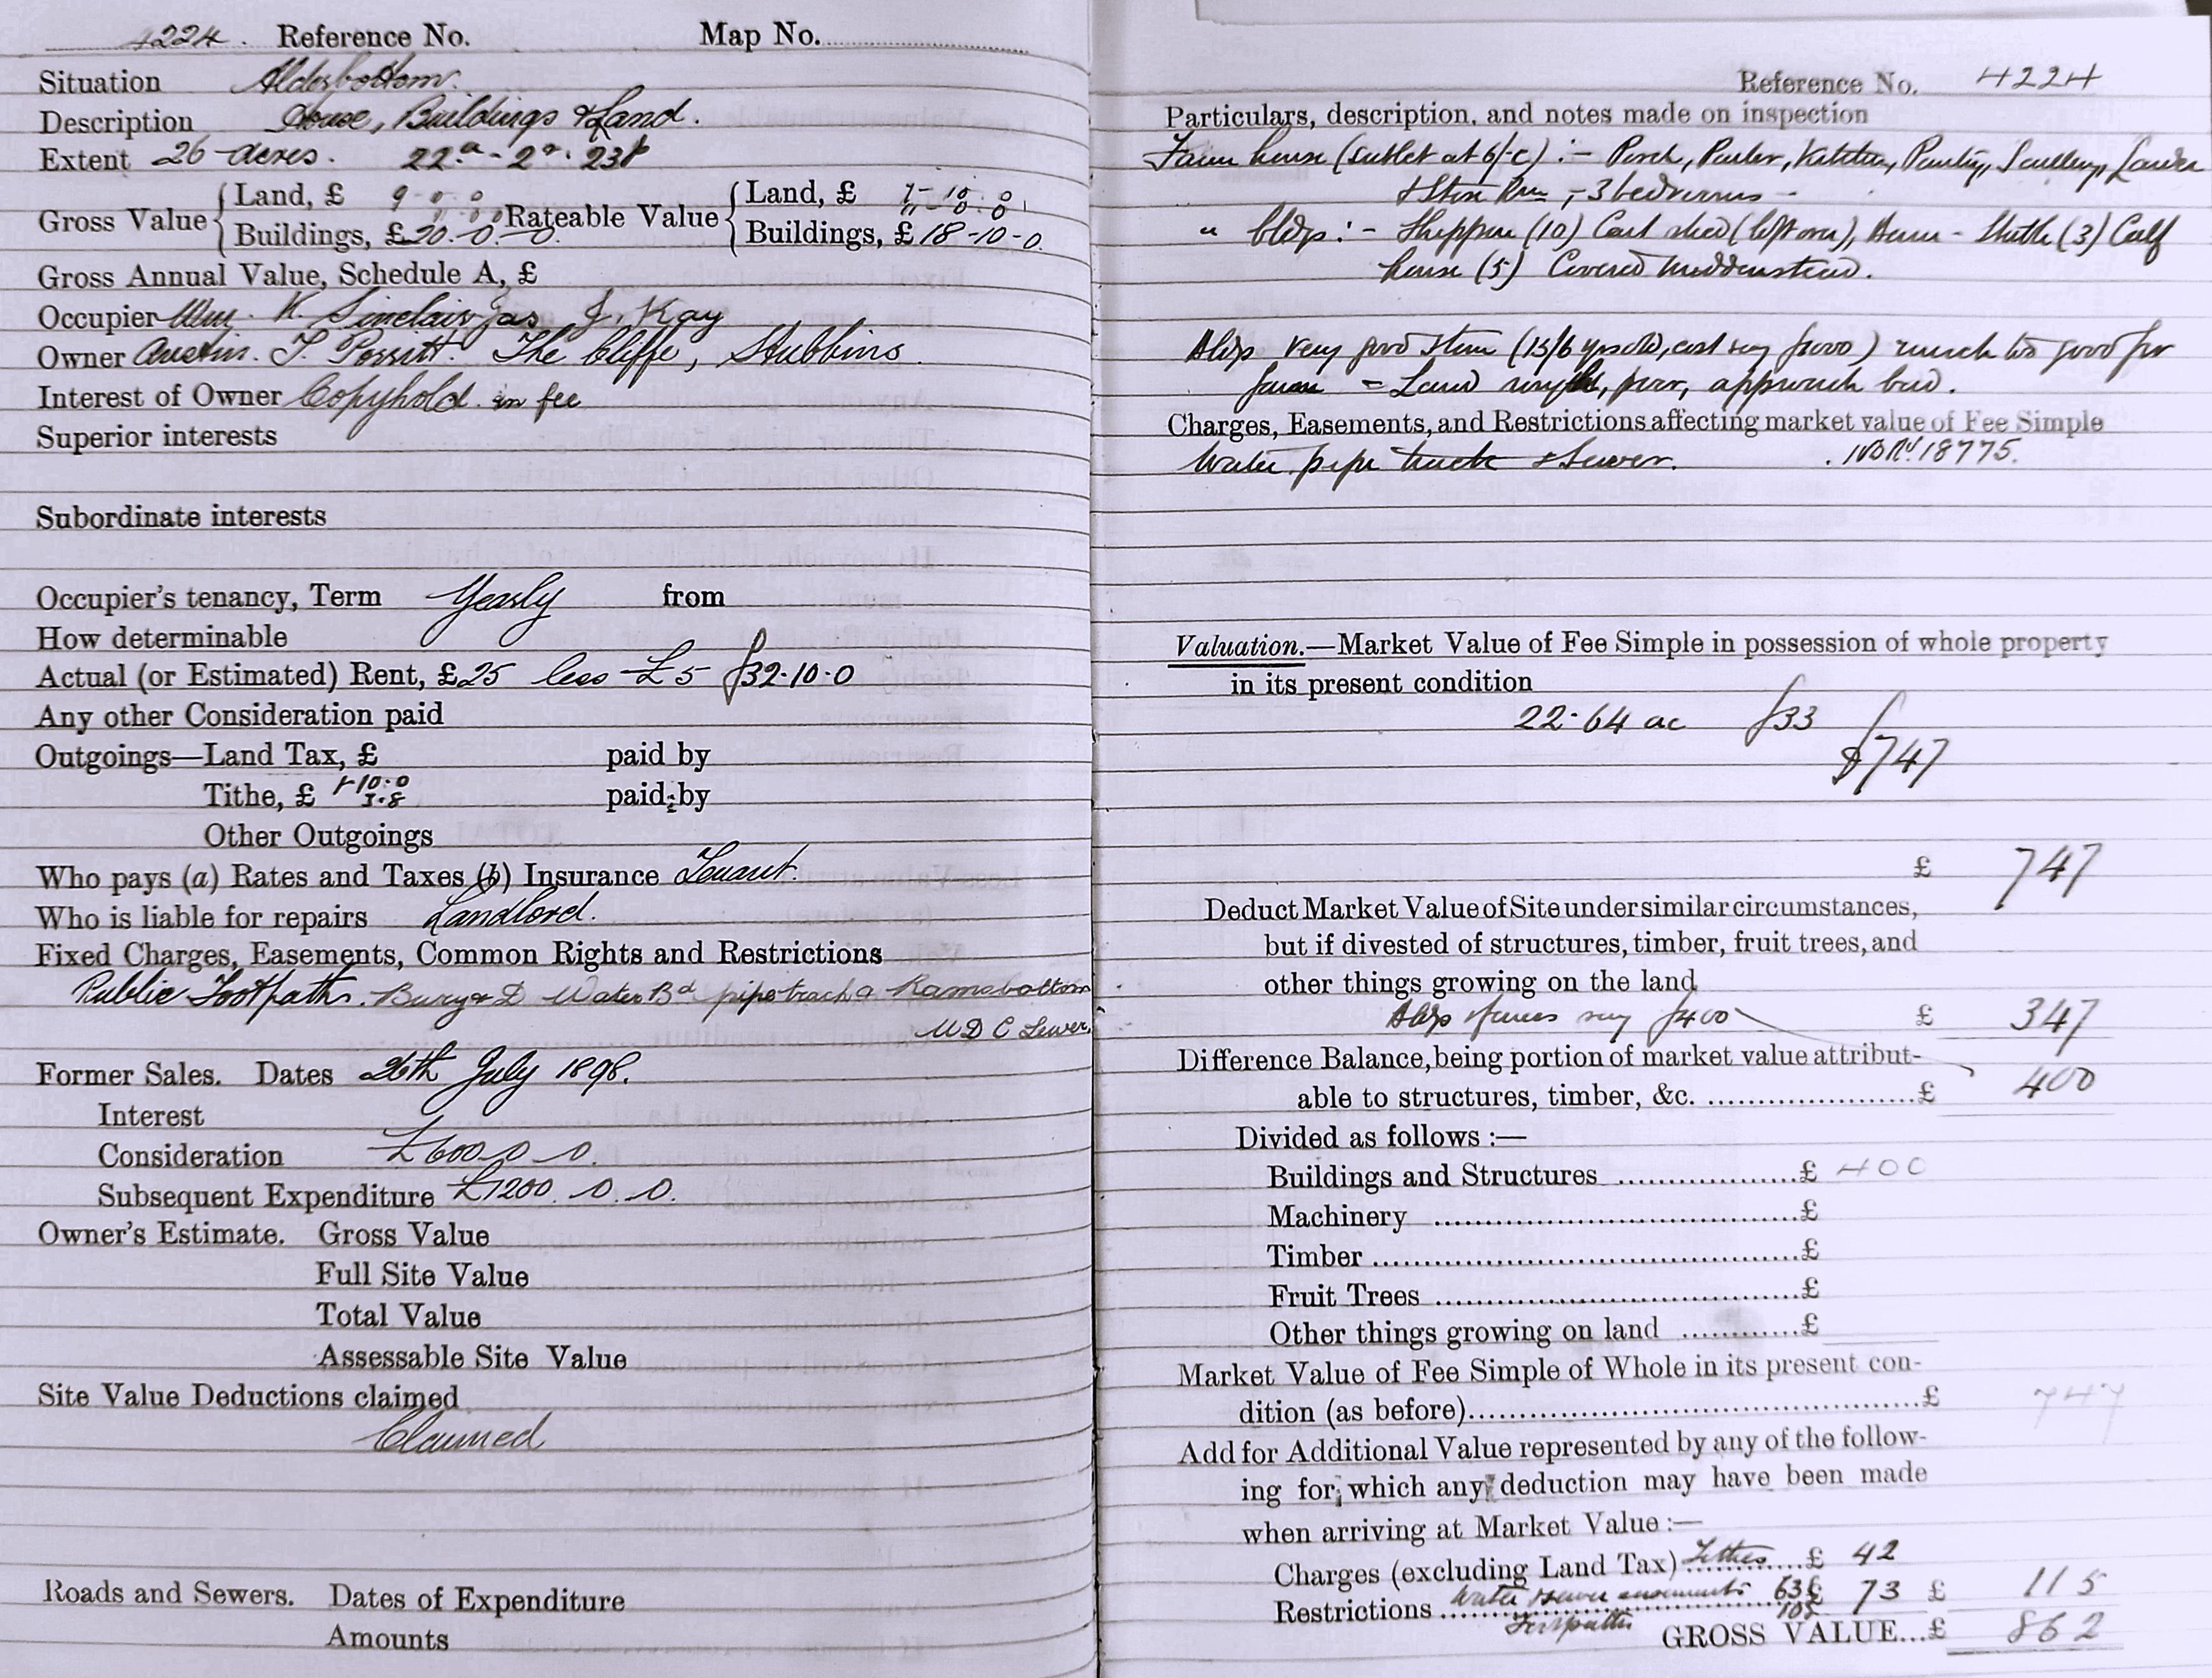 4224. Reference No. Map No.
Situation Alderbottom.
Description House, Buildings & Land.
Extent 26 acres. 22a - 2r. 23p
Gross Value { Land, £ 9 - 0. 0 Rateable Value { Land, £ 7 - 10. 0
Buildings, £20. 0. 0 Buildings, £18-10-0.
Gross Annual Value, Schedule A, £
Occupier Wm. K. Sinclair Jas J. Kay
Owner Austin. T. Porritt. The Cliffe, Stubbins.
Interest of Owner Copyhold in fee
Superior interests
Subordinate interests
Occupier's tenancy, Term Yearly from
How determinable
Actual (or Estimated) Rent, £25 less £5 £32.10.0
Any other Consideration paid
Outgoings—Land Tax, £ paid by
Tithe, £ 1-10.0 paid by
3.8
Other Outgoings
Who pays (a) Rates and Taxes (b) Insurance Tenant.
Who is liable for repairs Landlord.
Fixed Charges, Easements, Common Rights and Restrictions
Public Footpaths. Bury & D Water Bd pipe track & Ramsbottom
U D C Sewer.
Former Sales. Dates 26th July 1898.
Interest
Consideration £600. 0. 0.
Subsequent Expenditure £1200. 0. 0.
Owner's Estimate. Gross Value
Full Site Value
Total Value
Assessable Site Value
Site Value Deductions claimed
Claimed
Roads and Sewers. Dates of Expenditure
Amounts
Reference No. 4224
Particulars, description, and notes made on inspection
Farm house (sublet at 6/- c) :- Porch, Parlor, Kitchen, Pantry, Scullery, Larder
& Store Rm, - 3 bedrooms -
" bldgs :- Shippon (10) Cart shed (loft over), Barn - Stable (3) Calf
house (5) Covered middenstead.
Bldgs very good Stone (15/6 yrs old, cost say £1000) much too good for
farm - Land rough, poor, approach bad.
Charges, Easements, and Restrictions affecting market value of Fee Simple
Water pipe track & Sewer. 18775.
Valuation.—Market Value of Fee Simple in possession of whole property
in its present condition
22.64 ac £33
£747
£ 747
Deduct Market Value of Site under similar circumstances,
but if divested of structures, timber, fruit trees, and
other things growing on the land
Bldgs & fences say £400 £ 347
Difference Balance, being portion of market value attribut-
able to structures, timber, &c. ........ £ 400
Divided as follows :—
Buildings and Structures ........ £ 400
Machinery ........ £
Timber ........ £
Fruit Trees ........ £
Other things growing on land ........ £
Market Value of Fee Simple of Whole in its present con-
dition (as before)........ £ 747
Add for Additional Value represented by any of the follow-
ing for which any deduction may have been made
when arriving at Market Value :—
Charges (excluding Land Tax) Tithes £ 42
Restrictions Water & sewer easements 63 £ 73 £ 115
Footpaths 10
GROSS VALUE...£ 862